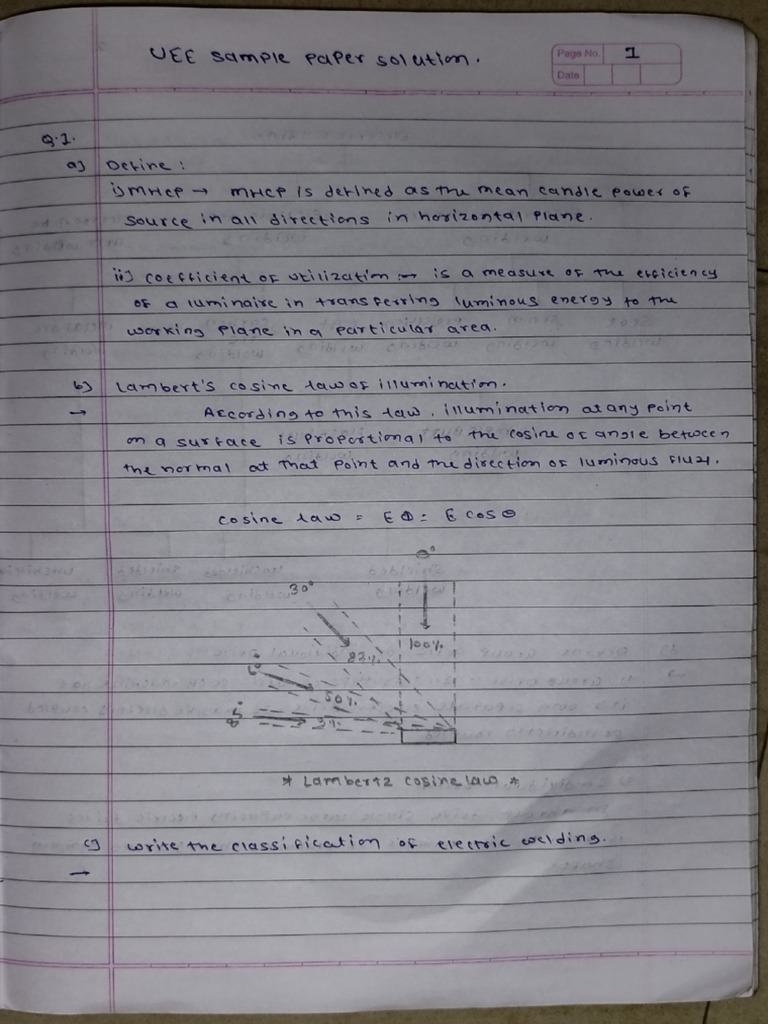 UEE sample paper solution.
Page No. 1
Date
Q.1.
a) Define :
i) MHCP → MHCP is defined as the mean candle power of
source in all directions in horizontal plane.
ii) coefficient of utilization :→ is a measure of the efficiency
of a luminaire in transferring luminous energy to the
working plane in a particular area.
b) Lambert's cosine law of illumination.
→ According to this law, illumination at any point
on a surface is proportional to the cosine of angle between
the normal at that point and the direction of luminous flux.
cosine law = EΦ = E cosθ
0°
30°
100%
50%
* Lambertz cosine law *
c) write the classification of electric welding.
→